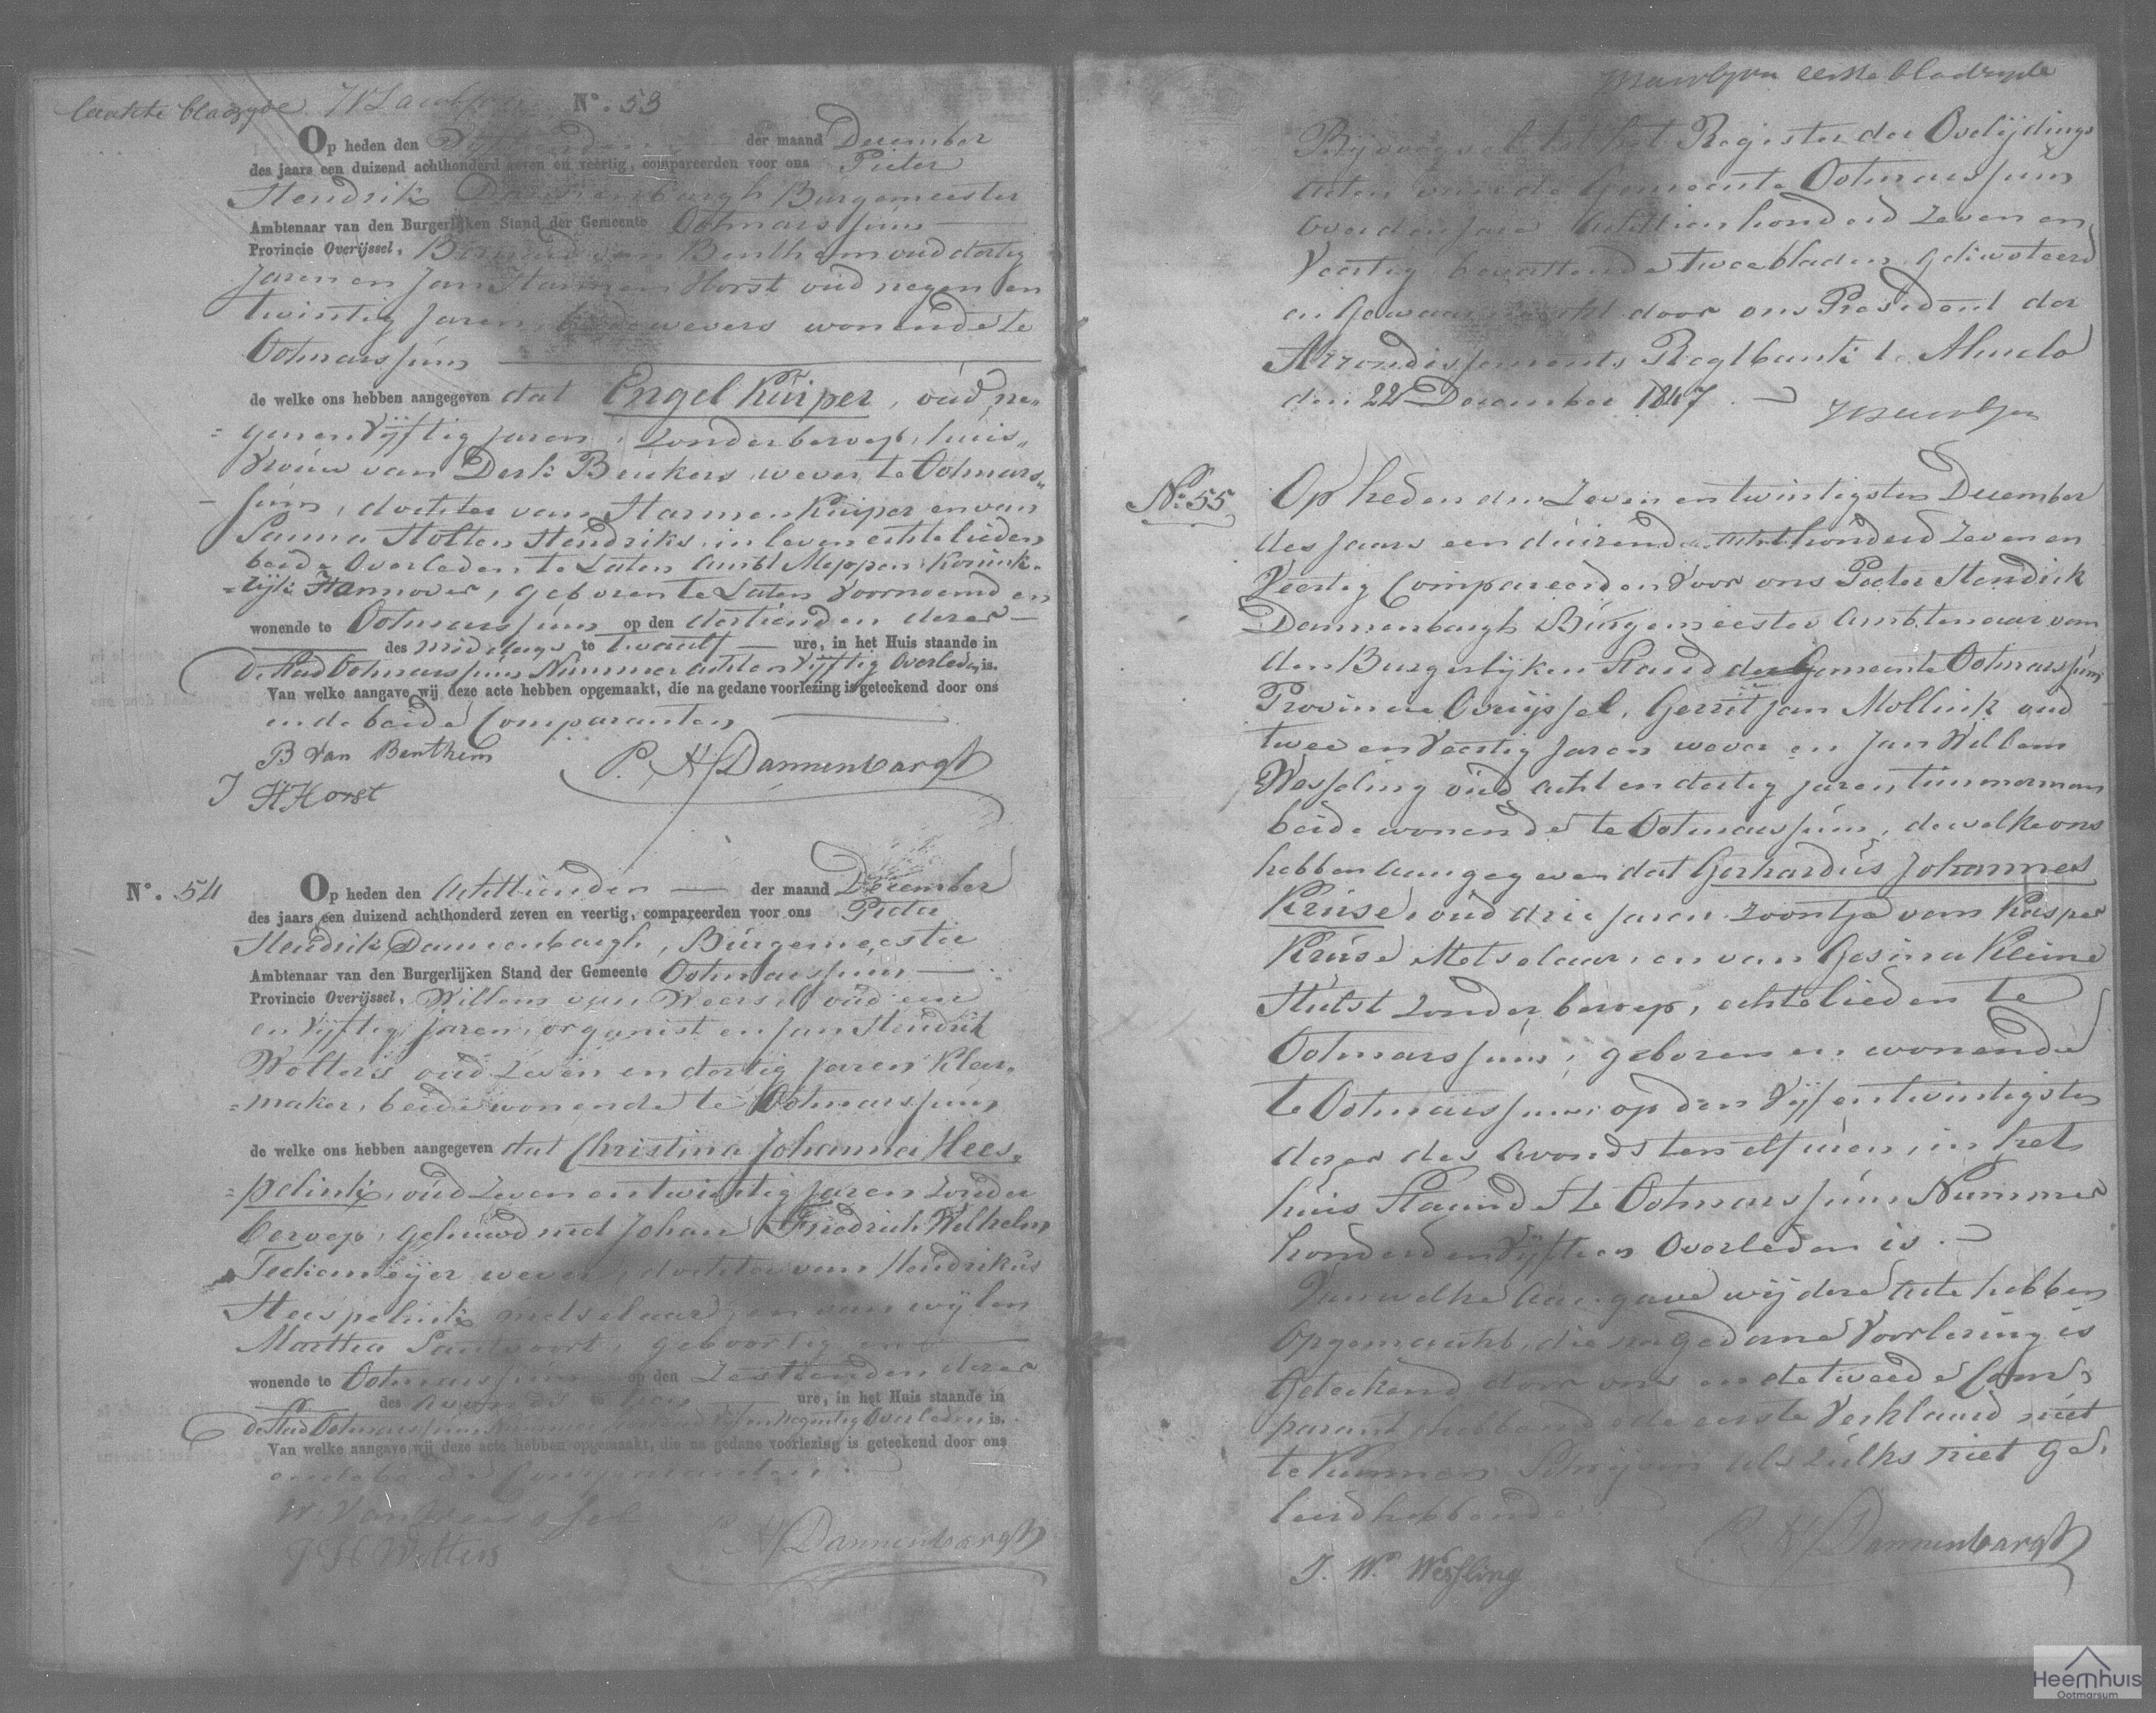 laatste bladzyde
N°. 53
Op heden den Vijftienden der maand December
des jaars een duizend achthonderd zeven en veertig, compareerden voor ons Pieter
Hendrik Dannenbargh Burgemeester
Ambtenaar van den Burgerlijken Stand der Gemeente Ootmarssum
Provincie Overijssel, Bernard van Benthem oud dertig
Jaren en Jan Harmen Horst oud negen en
twintig Jaren, beide wevers wonende te
Ootmarssum
de welke ons hebben aangegeven dat Engel Kuiper, oud ne„
=genenvijftig jaren, zonder beroep, huis„
vrouw van Derk Beukers wever te Ootmars„
sum, dochter van Harmen Kuiper en van
Sanna Holten Hendriks, in leven echtelieden
beide Overleden te Laten Ambt Meppen Konink„
=lijk Hannover, geboren te Laten voornoemd en
wonende te Ootmarssum op den dertienden dezer
des middags te twaalf ure, in het Huis staande in
de Stad Ootmarssum Nummer achtenvijftig Overleden is.
Van welke aangave wij deze acte hebben opgemaakt, die na gedane voorlezing is geteekend door ons
en de beide Comparanten
B Van Benthem P. H Dannenbargh
J H Horst
N°. 54 Op heden den Achttienden der maand December
des jaars een duizend achthonderd zeven en veertig, compareerden voor ons Pieter
Hendrik Dannenbargh, Burgemeester
Ambtenaar van den Burgerlijken Stand der Gemeente Ootmarssum
Provincie Overijssel, Willem van Weersel oud een
en vijftig jaren, organist en Jan Hendrik
Wolters oud zeven en dertig jaren Kleer„
=maker, beide wonende te Ootmarssum
de welke ons hebben aangegeven dat Christina Johanna Hees„
=pelink, oud zeven en twintig jaren zonder
beroep, gehuwd met Johan Friedrich Wilhelm
wever, dochter van Hendrikus
Heespelink metselaar, en van wijlen
Martha Santvoort, geboortig en
wonende te Ootmarssum op den Zestienden dezer
des avonds te ure, in het Huis staande in
de Stad Ootmarssum Nummer Overleden is.
Van welke aangave wij deze acte hebben opgemaakt, die na gedane voorlezing is geteekend door ons
en de beide Comparanten.
W. Van Weersel
J H Wolters P. H Dannenbargh
eerste bladzyde
Bijvoegsel tot het Register der Overlijdings
acten van de Gemeente Ootmarssum
over den Jare Achttien honderd zeven en
veertig bevattende twee bladen, gequoteerd
en Gewaarmerkt door ons President der
Arrondissements Regtbank te Almelo
den 22 December 1847.
N°. 55 Op heden den Zeven en twintigsten December
des Jaars een duizend achthonderd Zeven en
Veertig Compareerden voor ons Pieter Hendrik
Dannenbargh Burgemeester Ambtenaar van
den Burgerlijken Stand der Gemeente Ootmarssum
Provincie Overijssel, Gerrit Jan Mollink oud
twee en veertig Jaren wever en Jan Willem
Wesseling oud acht en dertig jaren timmerman
beide wonende te Ootmarssum, de welke ons
hebben aangegeven dat Gerhardus Johannes
Kruse, oud drie jaren zoontje van Kasper
Kruse Metselaar, en van Gesina Kleine
Hulst zonder beroep, echtelieden te
Ootmarssum, geboren en wonende
te Ootmarssum op den Vijf entwintigsten
dezer des Avonds ten elf uren, in het
huis Staande te Ootmarssum Nummer
honderd en Vijftien Overleden is.
Van welke Aangave wij deze Acte hebben
Opgemaakt, die na gedane Voorlezing is
Geteekend door ons en de tweede Com„
parant hebbende de eerste Verklaard niet
te Kunnen Schrijven als zulks niet ge„
leerd hebbende.
J. W. Wesseling P. H Dannenbargh
Heemhuis
Ootmarsum